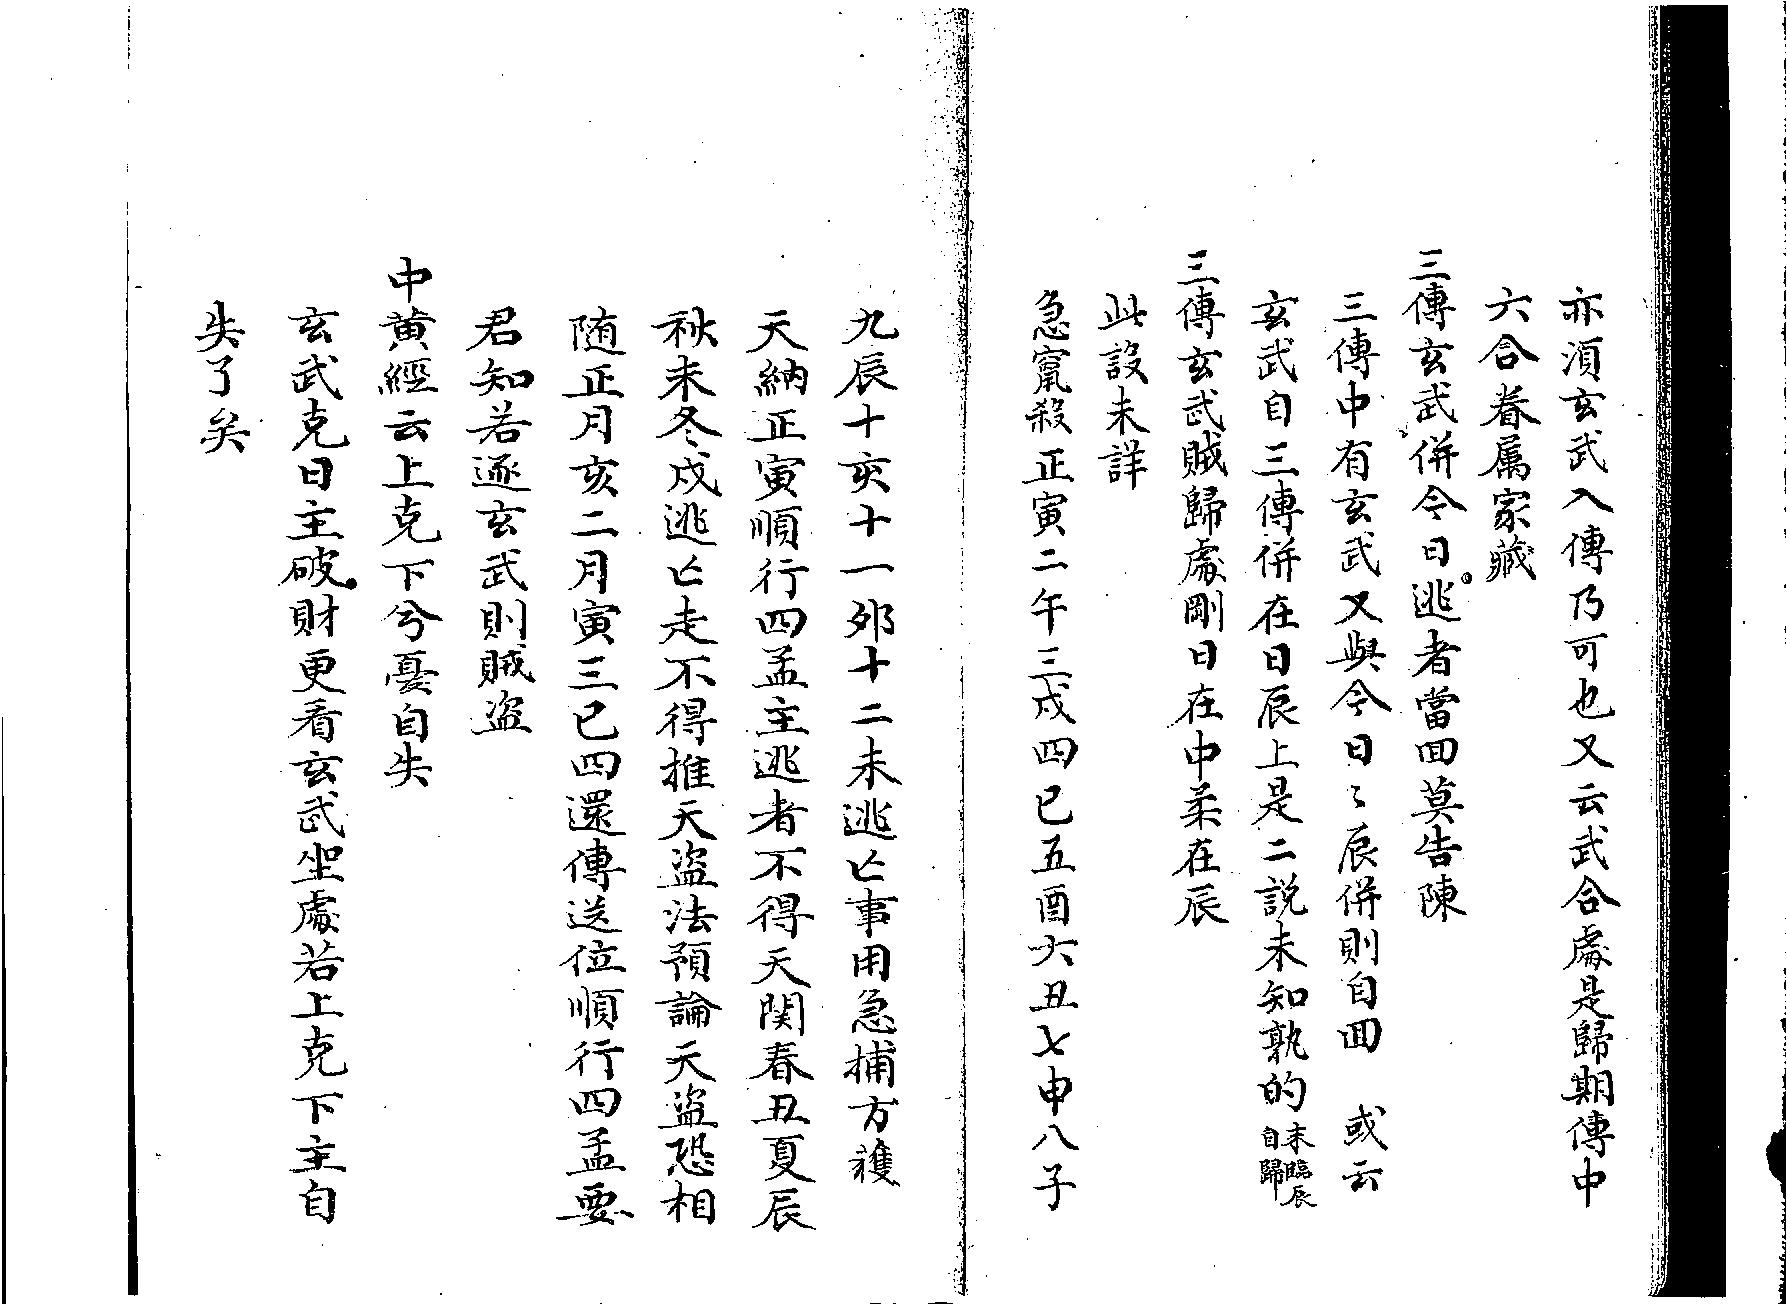 亦湏玄武入傳乃可也又云武合處是歸期傳中
六合眷属家藏
三傳玄武併今日逃者當回莫告陳
三傳中有玄武又與今日〻辰併則自回　或云
玄武自三傳併在日辰上是二説未知孰的末臨辰自歸
三傳玄武賊歸處剛日在中柔在辰
此設未詳
急竄殺正寅二午三戌四巳五酉六丑七申八子
九辰十亥十一夘十二未逃亡事用急捕方獲
天納正寅順行四孟主逃者不得天関春丑夏辰
秋未冬戌逃亡走不得推天盗法預論天盗恐相
随正月亥二月寅三巳四還傳送位順行四孟要
君知若逐玄武則賊盗
中黄經云上克下兮憂自失
玄武克日主破財更看玄武坐處若上克下主自
失了矣